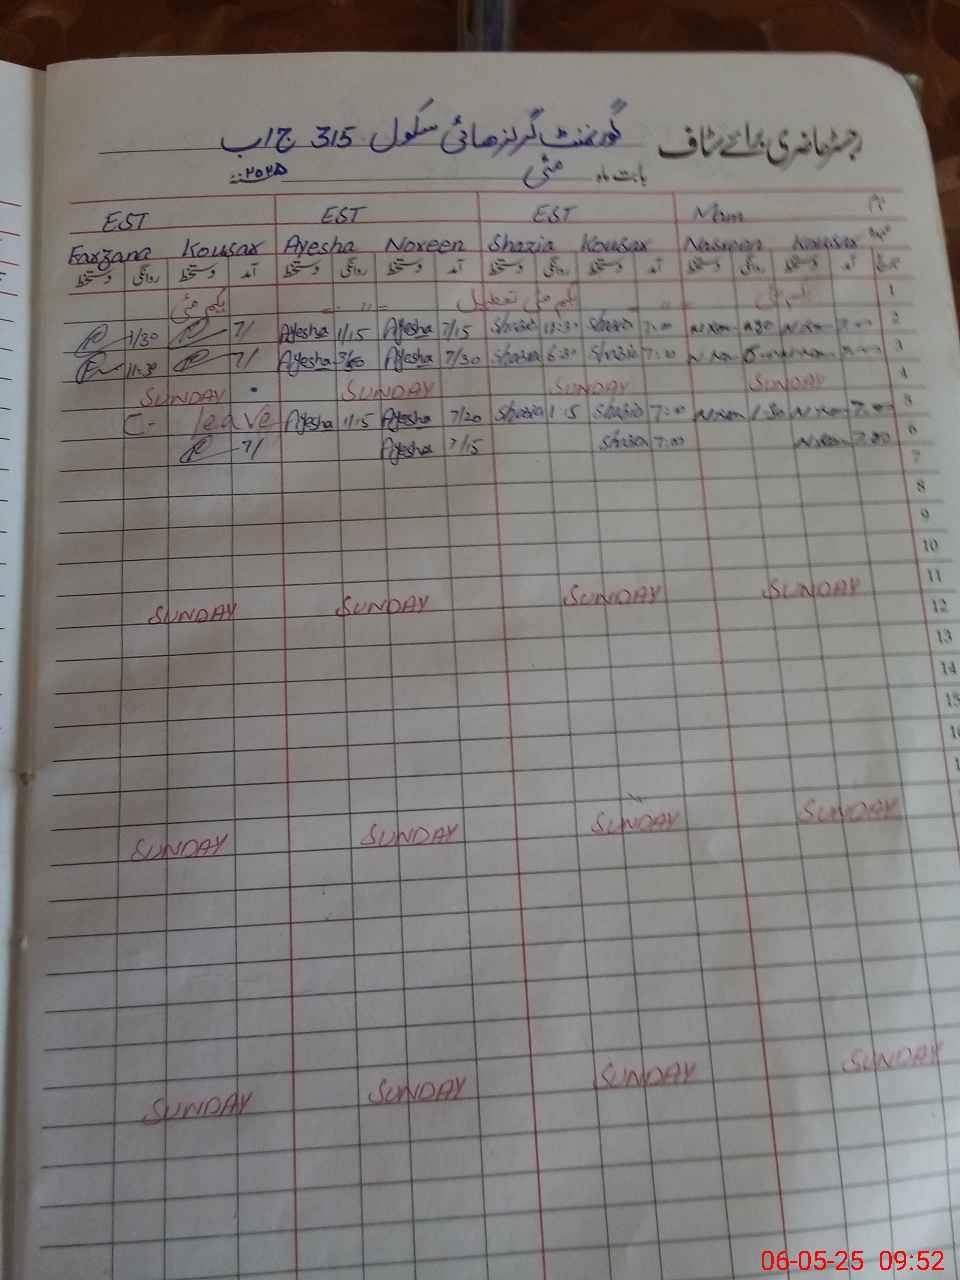 رجسٹر حاضری برائے سٹاف گورنمنٹ گرلز ھائی سکول 315 ج اب
بابت ماہ مئی ۲۰۲۵
EST EST EST
Farzana Kousar Ayesha Noreen Shazia Kousar Nasreen Kousar
دستخط روانگی دستخط آمد دستخط روانگی دستخط آمد دستخط روانگی دستخط آمد دستخط روانگی دستخط آمد تاریخ
یکم مئی یکم مئی تعطیل یکم مئی 1
1/30 7/ Ayesha 1/15 Ayesha 7/15 Shazia 12:30 Shazia 7:00 2
11:30 7/ Ayesha Ayesha 7/30 Shazia 6:30 Shazia 7:00 3
SUNDAY SUNDAY SUNDAY SUNDAY 4
C- leave Ayesha 1/15 Ayesha 7/20 Shazia 1:15 Shazia 7:00 1:30 7:00 5
7/ Ayesha 7/15 Shazia 7:00 7:00 6
7
8
9
10
SUNDAY SUNDAY SUNDAY SUNDAY 11
12
13
14
15
SUNDAY SUNDAY SUNDAY SUNDAY
SUNDAY SUNDAY SUNDAY SUNDAY
06-05-25 09:52